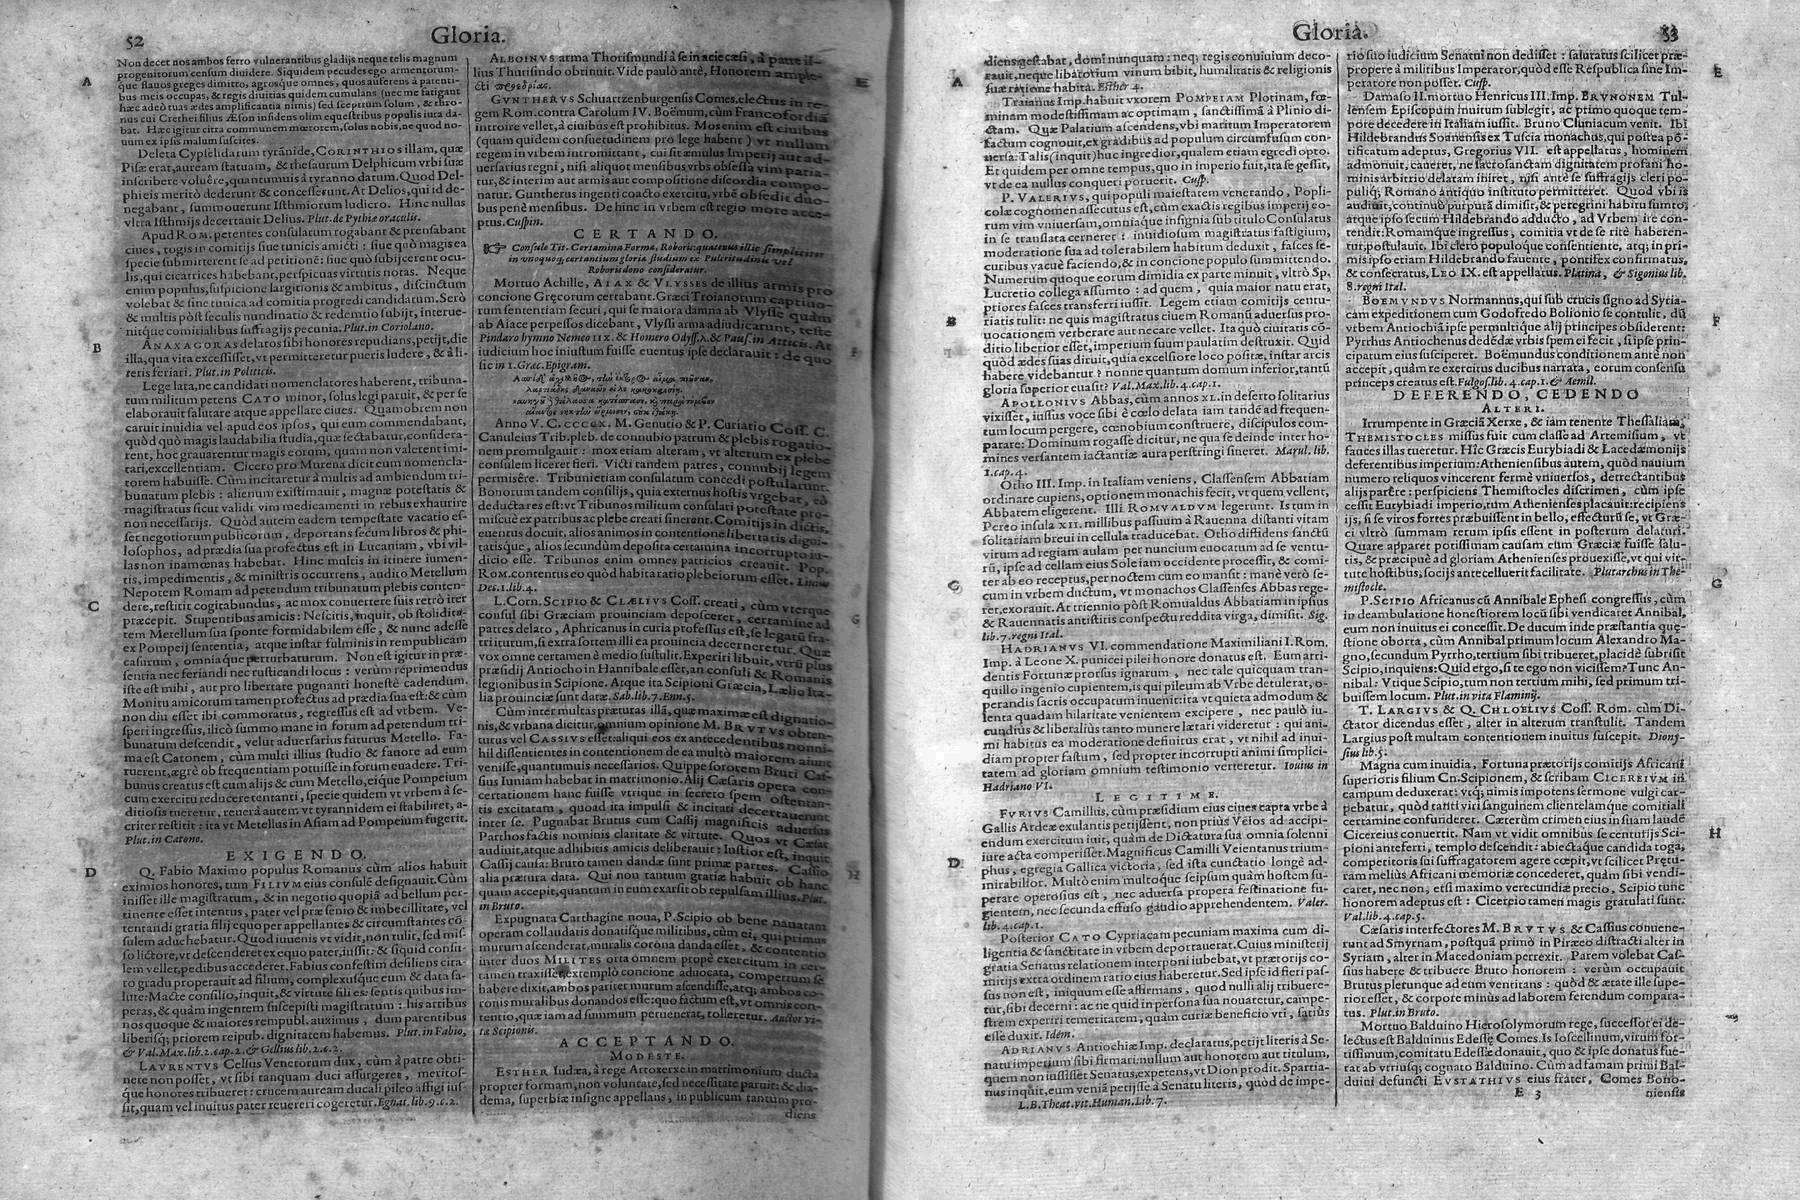 52
Gloria.
Non decet nos ambos ferro vulnerantibus gladijs neque telis magnum
progenitorum censum diuidere. Siquidem pecudes ego armentorum-
que flauos greges dimitto, agrosque omnes, quos auferens à parenti-
bus meis occupas, & regis diuitias quidem cumulans (nec me fatigant
hæc adeò tuas ædes amplificantia nimis) sed sceptrum solum, & thro-
nus cui Crethei filius Æson insidens olim equestribus populis iura da-
bat. Hæc igitur citra communem mœrorem, solus nobis, ne quod no-
uum ex ipsis malum suscites.
Deleta Cypselidarum tyrānide, CORINTHIOS illam, quæ
Pisæ erat, auream statuam, & thesaurum Delphicum vrbi suæ
inscribere voluêre, quantumuis à tyranno datum. Quod Del-
phieis meritò dederunt & concesserunt. At Delios, qui id de-
negabant, summouerunt Isthmiorum ludicro. Hinc nullus
vltra Isthmijs decertauit Delius. Plut. de Pythiæ oraculis.
Apud ROM. petentes consulatum rogabant & prensabant
ciues, togis in comitijs siue tunicis amicti: siue quò magis ea
specie submitterent se ad petitionē: siue quò subijcerent ocu-
lis, qui cicatrices habebant, perspicuas virtutis notas. Neque
enim populus, suspicione largitionis & ambitus, discinctum
volebat & sine tunica ad comitia progredi candidatum. Serò
& multis pòst seculis nundinatio & redemtio subijt, interue-
nitq́ue comitialibus suffragijs pecunia. Plut. in Coriolano.
ANAXAGORAS delatos sibi honores repudians, petijt, die
illa, qua vita excessisset, vt permitteretur pueris ludere, & à li-
teris feriari. Plut. in Politicis.
Lege lata, ne candidati nomenclatores haberent, tribuna-
tum militum petens CATO minor, solus legi paruit, & per se
elaborauit salutare atque appellare ciues. Quamobrem non
caruit inuidia vel apud eos ipsos, qui eum commendabant,
quòd quò magis laudabilia studia, quæ sectabatur, considera-
rent, hoc grauarentur magis eorum, quam non valerent imi-
tari, excellentiam. Cicero pro Murena dicit eum nomencla-
torem habuisse. Cùm incitaretur à multis ad ambiendum tri-
bunatum plebis: alienum existimauit, magnæ potestatis &
magistratus sicut validi vim medicamenti in rebus exhaurire
non necessarijs. Quòd autem eadem tempestate vacatio es-
set negotiorum publicorum, deportans secum libros & phi-
losophos, ad prædia sua profectus est in Lucaniam, vbi vil-
las non inamœnas habebat. Hinc multis in itinere iumen-
tis, impedimentis, & ministris occurrens, audito Metellum
Nepotem Romam ad petendum tribunatum plebis conten-
dere, restitit cogitabundus, ac mox conuertere suis retrò iter
præcepit. Stupentibus amicis: Nescitis, inquit, ob stolidita-
tem Metellum sua sponte formidabilem esse, & nunc adesse
ex Pompeij sententia, atque instar fulminis in rempublicam
casurum, omniaque perturbaturum. Non est igitur in præ-
sentia nec feriandi nec rusticandi locus: verùm reprimendus
iste est mihi, aut pro libertate pugnanti honestè cadendum.
Monitu amicorum tamen profectus ad prædia sua est: & cùm
non diu esset ibi commoratus, regressus est ad vrbem. Ve-
speri ingressus, ilicò summo mane in forum ad petendum tri-
bunatum descendit, velut aduersarius futurus Metello. Fa-
ma est Catonem, cùm multi illius studio & fauore ad eum
ruerent, ægrè ob frequentiam potuisse in forum euadere. Tri-
bunus creatus est cum alijs & cum Metello, eique Pompeium
cum exercitu reducere tentanti, specie quidem vt vrbem à se-
ditiosis tueretur, reuerà autem vt tyrannidem ei stabiliret, a-
criter restitit: ita vt Metellus in Asiam ad Pompeium fugerit.
Plut. in Catone.
EXIGENDO.
Q. Fabio Maximo populus Romanus cùm alios habuit
eximios honores, tum FILIVM eius consulē designauit. Cùm
inisset ille magistratum, & in negotio quopiā ad bellum per-
tinente esset intentus, pater vel præ senio & imbecillitate, vel
tentandi gratia filij equo per appellantes & circumstantes cō-
sulem aduehebatur. Quod iuuenis vt vidit, non tulit, sed mis-
so lictore, vt descenderet ex equo pater, iussit: & siquid consu-
lem vellet, pedibus accederet. Fabius confestim desiliens cita-
to gradu properauit ad filium, complexusque eum & data sa-
lute: Macte consilio, inquit, & virtute fili es: sentis quibus im-
peras, & quàm ingentem susceptisti magistratum: his artibus
nos quoque & maiores rempubl. auximus, dum parentibus
liberisq́; priorem reipub. dignitatem habemus. Plut. in Fabio,
& Val. Max. lib. 2. cap. 2. & Gellius lib. 2. c. 2.
LAVRENTVS Celsus Venetorum dux, cùm à patre obti-
nere non posset, vt sibi tanquam duci assurgeret, meritos-
que honores tribueret: crucem auream ducali pileo affigi ius-
sit, quam vel inuitus pater reuereri cogeretur. Egnat. lib. 9. c. 2.
A
B
C
D
ALBOINVS arma Thorismundi à se in acie cæsi, à patre il-
lius Thurisindo obtinuit. Vide paulò antè, Honorem ample-
cti προεδρίας.
GVNTHERVS Schuartzenburgensis Comes, electus in re-
gem Rom. contra Carolum IV. Boëmum, cùm Francofordiā
introire vellet, à ciuibus est prohibitus. Mos enim est ciuibus
(quam quidem consuetudinem pro lege habent) vt nullum
regem in vrbem intromittant, cui sit æmulus Imperij aut ad-
uersarius regni, nisi aliquot mensibus vrbs obsessa vim patia-
tur, & interim aut armis aut compositione discordia compo-
natur. Guntherus ingenti coacto exercitu, vrbē obsedit duo-
bus penè mensibus. De hinc in vrbem est regio more acce-
ptus. Cuspin.
CERTANDO.
☞ Consule Tit. Certamina Formæ, Roboris: quatenus illic simpliciter
in vnoquoq; certantium gloriæ studium ex Pulcritudinis vel
Roboris dono consideratur.
Mortuo Achille, AIAX & VLYSSES de illius armis pro
concione Gręcorum certabant. Græci Troianorum captiuo-
rum sententiam secuti, qui se maiora damna ab Vlysse quàm
ab Aiace perpessos dicebant, Vlyssi arma adiudicarunt, teste
Pindaro hymno Nemeo IIX. & Homero Odyss. λ. & Paus. in Atticis. At
iudicium hoc iniustum fuisse euentus ipse declarauit: de quo
sic in 1. Græc. Epigram.
Anno V. C. CCCCX. M. Genutio & P. Curiatio Coss. C.
Canuleius Trib. pleb. de connubio patrum & plebis rogatio-
nem promulgauit: mox etiam alteram, vt alterum ex plebe
consulem liceret fieri. Victi tandem patres, connubij legem
permisêre. Tribunietiam consulatum concedi postularunt.
Bonorum tandem consilijs, quia externus hostis vrgebat, eò
deducta res est: vt Tribunos militum consulari potestate pro-
miscuè ex patribus ac plebe creati sinerent. Comitijs in dictis,
euentus docuit, alios animos in contentione libertatis digni-
tatisque, alios secundùm deposita certamina incorrupto iu-
dicio esse. Tribunos enim omnes patricios creauit. Pop.
ROM. contentus eo quòd habita ratio plebeiorum esset. Liuius
Dec. 1. lib. 4.
L. Corn. SCIPIO & C. LÆLIVS Coss. creati, cùm vterque
consul sibi Græciam prouinciam deposceret, certamine ad
patres delato, Aphricanus in curia professus est, se legatū fra-
tri iturum, si extra sortem illi ea prouincia decerneretur. Quæ
vox omne certamen è medio sustulit. Experiri libuit, vtrū plus
præsidij Antiocho in Hannibale esset, an consuli & Romanis
legionibus in Scipione. Atque ita Scipioni Græcia, Lælio Ita-
lia prouinciæ sunt datæ. Sab. lib. 7. Enn. 5.
Cùm inter multas præturas illā, quæ maximæ est dignatio-
nis, & vrbana dicitur, omnium opinione M. BRVTVS obten-
turus vel CASSIVS esset: aliqui eos ex antecedentibus nonni-
hil dissentientes in contentionem de ea multò maiorem aiunt
venisse, quantumuis necessarios. Quippe sororem Bruti Cas-
sius Iuniam habebat in matrimonio. Alij Cæsaris opera con-
certationem hanc fuisse vtrique in secreto spem ostentan-
tis excitatam, quoad ita impulsi & incitati decertauerunt
inter se. Pugnabat Brutus cum Cassij magnificis aduersus
Parthos factis nominis claritate & virtute. Quos vt Cæsar
audiuit, atque adhibitis amicis deliberauit: Iustior est, inquit
Cassij causa: Bruto tamen dandæ sunt primæ partes. Cassio
alia prætura data. Qui non tantum gratiæ habuit ob hanc
quam accepit, quantum in eum exarsit ob repulsam illius. Plut.
in Bruto.
Expugnata Carthagine noua, P. Scipio ob bene nauatam
operam collaudatis donatisque militibus, cùm ei, qui primus
murum ascenderat, muralis corona danda esset, & contentio
inter duos MILITES orta omnem propè exercitum in cer-
tamen traxisset, extemplò concione aduocata, compertum se
habere dixit, ambos pariter murum ascendisse, atq; ambos co-
ronis muralibus donandos esse: quo factum est, vt omnis con-
tentio, quæ iam ad summum peruenerat, tolleretur. Auctor vi-
tæ Scipionis.
ACCEPTANDO.
MODESTE.
ESTHER Iudæa, à rege Artoxerxe in matrimonium ducta
propter formam, non voluntate, sed necessitate paruit: & dia-
dema, superbiæ insigne appellans, in publicum tantùm pro-
diens
E
F
G
H
Gloria.
53
diens gestabat, domi nunquam: neq; regis conuiuium deco-
rauit, neque libatorium vinum bibit, humilitatis & religionis
suæ ratione habita. Esther 4.
Traianus Imp. habuit vxorem POMPEIAM Plotinam, fœ-
minam modestissimam ac optimam, sanctissimā à Plinio di-
ctam. Quæ Palatium ascendens, vbi maritum Imperatorem
factum cognouit, ex gradibus ad populum circumfusum con-
uersa: Talis (inquit) huc ingredior, qualem etiam egredi opto.
Et quidem per omne tempus, quo in imperio fuit, ita se gessit,
vt de ea nullus conqueri potuerit. Cusp.
P. VALERIVS, qui populi maiestatem venerando, Popli-
colæ cognomen assecutus est, cùm exactis regibus imperij eo-
rum vim vniuersam, omniaque insignia sub titulo Consulatus
in se translata cerneret: inuidiosum magistratus fastigium,
moderatione sua ad tolerabilem habitum deduxit, fasces se-
curibus vacuè faciendo, & in concione populo summittendo.
Numerum quoque eorum dimidia ex parte minuit, vltrò Sp.
Lucretio collega assumto: ad quem, quia maior natu erat,
priores fasces transferri iussit. Legem etiam comitijs centu-
riatis tulit: ne quis magistratus ciuem Romanū aduersus pro-
uocationem verberare aut necare vellet. Ita quò ciuitatis cō-
ditio liberior esset, imperium suum paulatim destruxit. Quid
quòd ædes suas diruit, quia excelsiore loco positæ, instar arcis
habere videbantur? nonne quantum domum inferior, tantū
gloria superior euasit? Val. Max. lib. 4. cap. 1.
APOLLONIVS Abbas, cùm annos XL. in deserto solitarius
vixisset, iussus voce sibi è cœlo delata iam tandē ad frequen-
tum locum pergere, cœnobium construere, discipulos com-
parare: Dominum rogasse dicitur, ne qua se deinde inter ho-
mines versantem iactantiæ aura perstringi sineret. Marul. lib.
1. cap. 4.
Otho III. Imp. in Italiam veniens, Classensem Abbatiam
ordinare cupiens, optionem monachis fecit, vt quem vellent,
Abbatem eligerent. Illi ROMVALDVM legerunt. Is tum in
Pereo insula XII. millibus passuum à Rauenna distanti vitam
solitariam breui in cellula traducebat. Otho distidens sanctū
virum ad regiam aulam per nuncium euocatum ad se ventu-
rū, ipse ad cellam eius Sole iam occidente processit, & comi-
ter ab eo receptus, per noctem cum eo mansit: manè verò se-
cum in vrbem ductum, vt monachos Classenses Abbas rege-
ret, exorauit. At triennio pòst Romualdus Abbatiam in ipsius
& Rauennatis antistitis conspectu reddita virga, dimisit. Sig.
lib. 7. regni Ital.
HADRIANVS VI. commendatione Maximiliani I. Rom.
Imp. à Leone X. punicei pilei honore donatus est. Eum arti-
dentis Fortunæ prorsus ignarum, nec tale quicquam tran-
quillo ingenio cupientem, is qui pileum ab Vrbe detulerat, o-
perandis sacris occupatum inuenit: ita vt quieta admodum &
lenta quadam hilaritate venientem excipere, nec paulò iu-
cundiùs & liberaliùs tanto munere lætari videretur: qui ani-
mi habitus ea moderatione definitus erat, vt nihil ad inui-
diam propter fastum, sed propter incorrupti animi simplici-
tatem ad gloriam omnium testimonio verteretur. Iouius in
Hadriano VI.
LEGITIME.
FVRIVS Camillus, cùm præsidium eius ciues capta vrbe à
Gallis Ardeæ exulantis petijssent, non priùs Veios ad accipi-
endum exercitum iuit, quàm de Dictatura sua omnia solenni
iure acta comperisset. Magnificus Camilli Veientanus trium-
phus, egregia Gallica victoria, sed ista cunctatio longè ad-
mirabilior. Multò enim multoque seipsum quàm hostem su-
perare operosius est, nec aduersa propera festinatione fu-
gientem, nec secunda effuso gaudio apprehendentem. Valer.
lib. 4. cap. 1.
Posterior CATO Cypriacam pecuniam maxima cum di-
ligentia & sanctitate in vrbem deportauerat. Cuius ministerij
gratia Senatus relationem interponi iubebat, vt prætorijs co-
mitijs extra ordinem ratio eius haberetur. Sed ipse id fieri pas-
sus non est, iniquum esse affirmans, quod nulli alij tribuere-
tur, sibi decerni: ac ne quid in persona sua nouaretur, campe-
strem experiri temeritatem, quàm curiæ beneficio vti, satius
esse duxit. Idem.
ADRIANVS Antiochiæ Imp. declaratus, petijt literis à Se-
natu imperium sibi firmari: nullum aut honorem aut titulum,
quem non iussisset Senatus, expetens, vt Dion prodit. Spartia-
nus inquit, eum veniā petijsse à Senatu literis, quòd de impe-
L. B. Theat. vit. Human. Lib. 7.
A
B
C
D
rio suo iudicium Senatui non dedisset: salutatus scilicet præ-
propere à militibus Imperator, quòd esse Respublica sine Im-
peratore non posset. Cusp.
Damaso II. mortuo Henricus III. Imp. BRVNONEM Tul-
lensem Episcopum inuitum sublegit, ac primo quoque tem-
pore decedere in Italiam iussit. Bruno Cluniacum venit. Ibi
Hildebrandus Sonnensis ex Tuscia monachus, qui postea pō-
tificatum adeptus, Gregorius VII. est appellatus, hominem
admonuit, caueret, ne sacrosanctam dignitatem profani ho-
minis arbitrio delatam itiret, nisi antè se suffragijs cleri po-
puliq́; Romano antiquo instituto permitteret. Quod vbi is
audiuit, continuò purpurā dimisit, & peregrini habitu sumto,
atque ipso secum Hildebrando adducto, ad Vrbem ire con-
tendit: Romamque ingressus, comitia vt de se ritè haberen-
tur, postulauit. Ibi clero populoque consentiente, atq; in pri-
mis ipso etiam Hildebrando fauente, pontifex confirmatus,
& consecratus, LEO IX. est appellatus. Platina, & Sigonius lib.
8. regni Ital.
BOEMVNDVS Normannus, qui sub crucis signo ad Syria-
cam expeditionem cum Godofredo Bolionio se contulit, dū
vrbem Antiochiā ipse permultique alij principes obsiderent:
Pyrrhus Antiochenus dedēdæ vrbis spem ei fecit, si ipse prin-
cipatum eius susciperet. Boëmundus conditionem antè non
accepit, quàm re exercitus ducibus narrata, eorum consensu
princeps creatus est. Fulgos. lib. 4. cap. 1. & Aemil.
DEFERENDO, CEDENDO
ALTERI.
Irrumpente in Græciā Xerxe, & iam tenente Thessaliam,
THEMISTOCLES missus fuit cum classe ad Artemisium, vt
fauces illas tueretur. Hîc Græcis Eurybiadi & Lacedæmonijs
deferentibus imperium: Atheniensibus autem, quòd nauium
numero reliquos vincerent fermè vniuersos, detrectantibus
alijs parêre: perspiciens Themistocles discrimen, cùm ipse
cessit Eurybiadi imperio, tùm Athenienses placauit: recipiens
ijs, si se viros fortes præbuissent in bello, effecturū se, vt Græ-
ci vltrò summam rerum ipsis essent in posterum delaturi.
Quare apparet potissimam causam eum Græciæ fuisse salu-
tis, & præcipuè ad gloriam Athenienses prouexisse, vt qui vir-
tute hostibus, socijs antecelluerit facilitate. Plutarchus in The-
mistocle.
P. SCIPIO Africanus cū Annibale Ephesi congressus, cùm
in deambulatione honestiorem locū sibi vendicaret Annibal,
eum non inuitus ei concessit. De ducum inde præstantia quę-
stione oborta, cùm Annibal primum locum Alexandro Ma-
gno, secundum Pyrrho, tertium sibi tribueret, placidè subrisit
Scipio, inquiens: Quid ergo, si te ego non vicissem? Tunc An-
nibal: Vtique Scipio, tum non tertium mihi, sed primum tri-
buissem locum. Plut. in vita Flaminij.
T. LARGIVS & Q. CHLOELIVS Coss. Rom. cùm Di-
ctator dicendus esset, alter in alterum transtulit. Tandem
Largius post multam contentionem inuitus suscepit. Diony-
sius lib. 5.
Magna cum inuidia, Fortuna prætorijs comitijs Africani
superioris filium Cn. Scipionem, & scribam CICEREIVM in
campum deduxerat: vtq́; nimis impotens sermone vulgi car-
pebatur, quòd tanti viri sanguinem clientelamque comitiali
certamine confunderet. Cæterùm crimen eius in suam laudē
Cicereius conuertit. Nam vt vidit omnibus se centurijs Sci-
pioni anteferri, templo descendit: abiectaque candida toga,
competitoris sui suffragatorem agere cœpit, vt scilicet Prętu-
ram meliùs Africani memoriæ concederet, quàm sibi vendi-
caret, nec non, etsi maximo verecundiæ precio, Scipio tunc
honorem adeptus est: Cicereio tamen magis gratulati sunt.
Val. lib. 4. cap. 5.
Cæsaris interfectores M. BRVTVS & Cassius conuene-
runt ad Smyrnam, postquā primò in Piræeo distracti alter in
Syriam, alter in Macedoniam perrexit. Parem volebat Cas-
sius habere & tribuere Bruto honorem: verùm occupauit
Brutus plerunque ad eum ventitans: quòd & ætate ille supe-
rior esset, & corpore minùs ad laborem ferendum compara-
tus. Plut. in Bruto.
Mortuo Balduino Hierosolymorum rege, successor ei de-
lectus est Balduinus Edessę Comes. Is Ioscellinum, virum for-
tissimum, comitatu Edessæ donauit, quo & ipse donatus fue-
rat ab vtriusq; cognato Balduino. Cùm ad famam primi Bal-
duini defuncti EVSTATHIVS eius frater, Comes Bono-
E 3
niensis
E
F
G
H